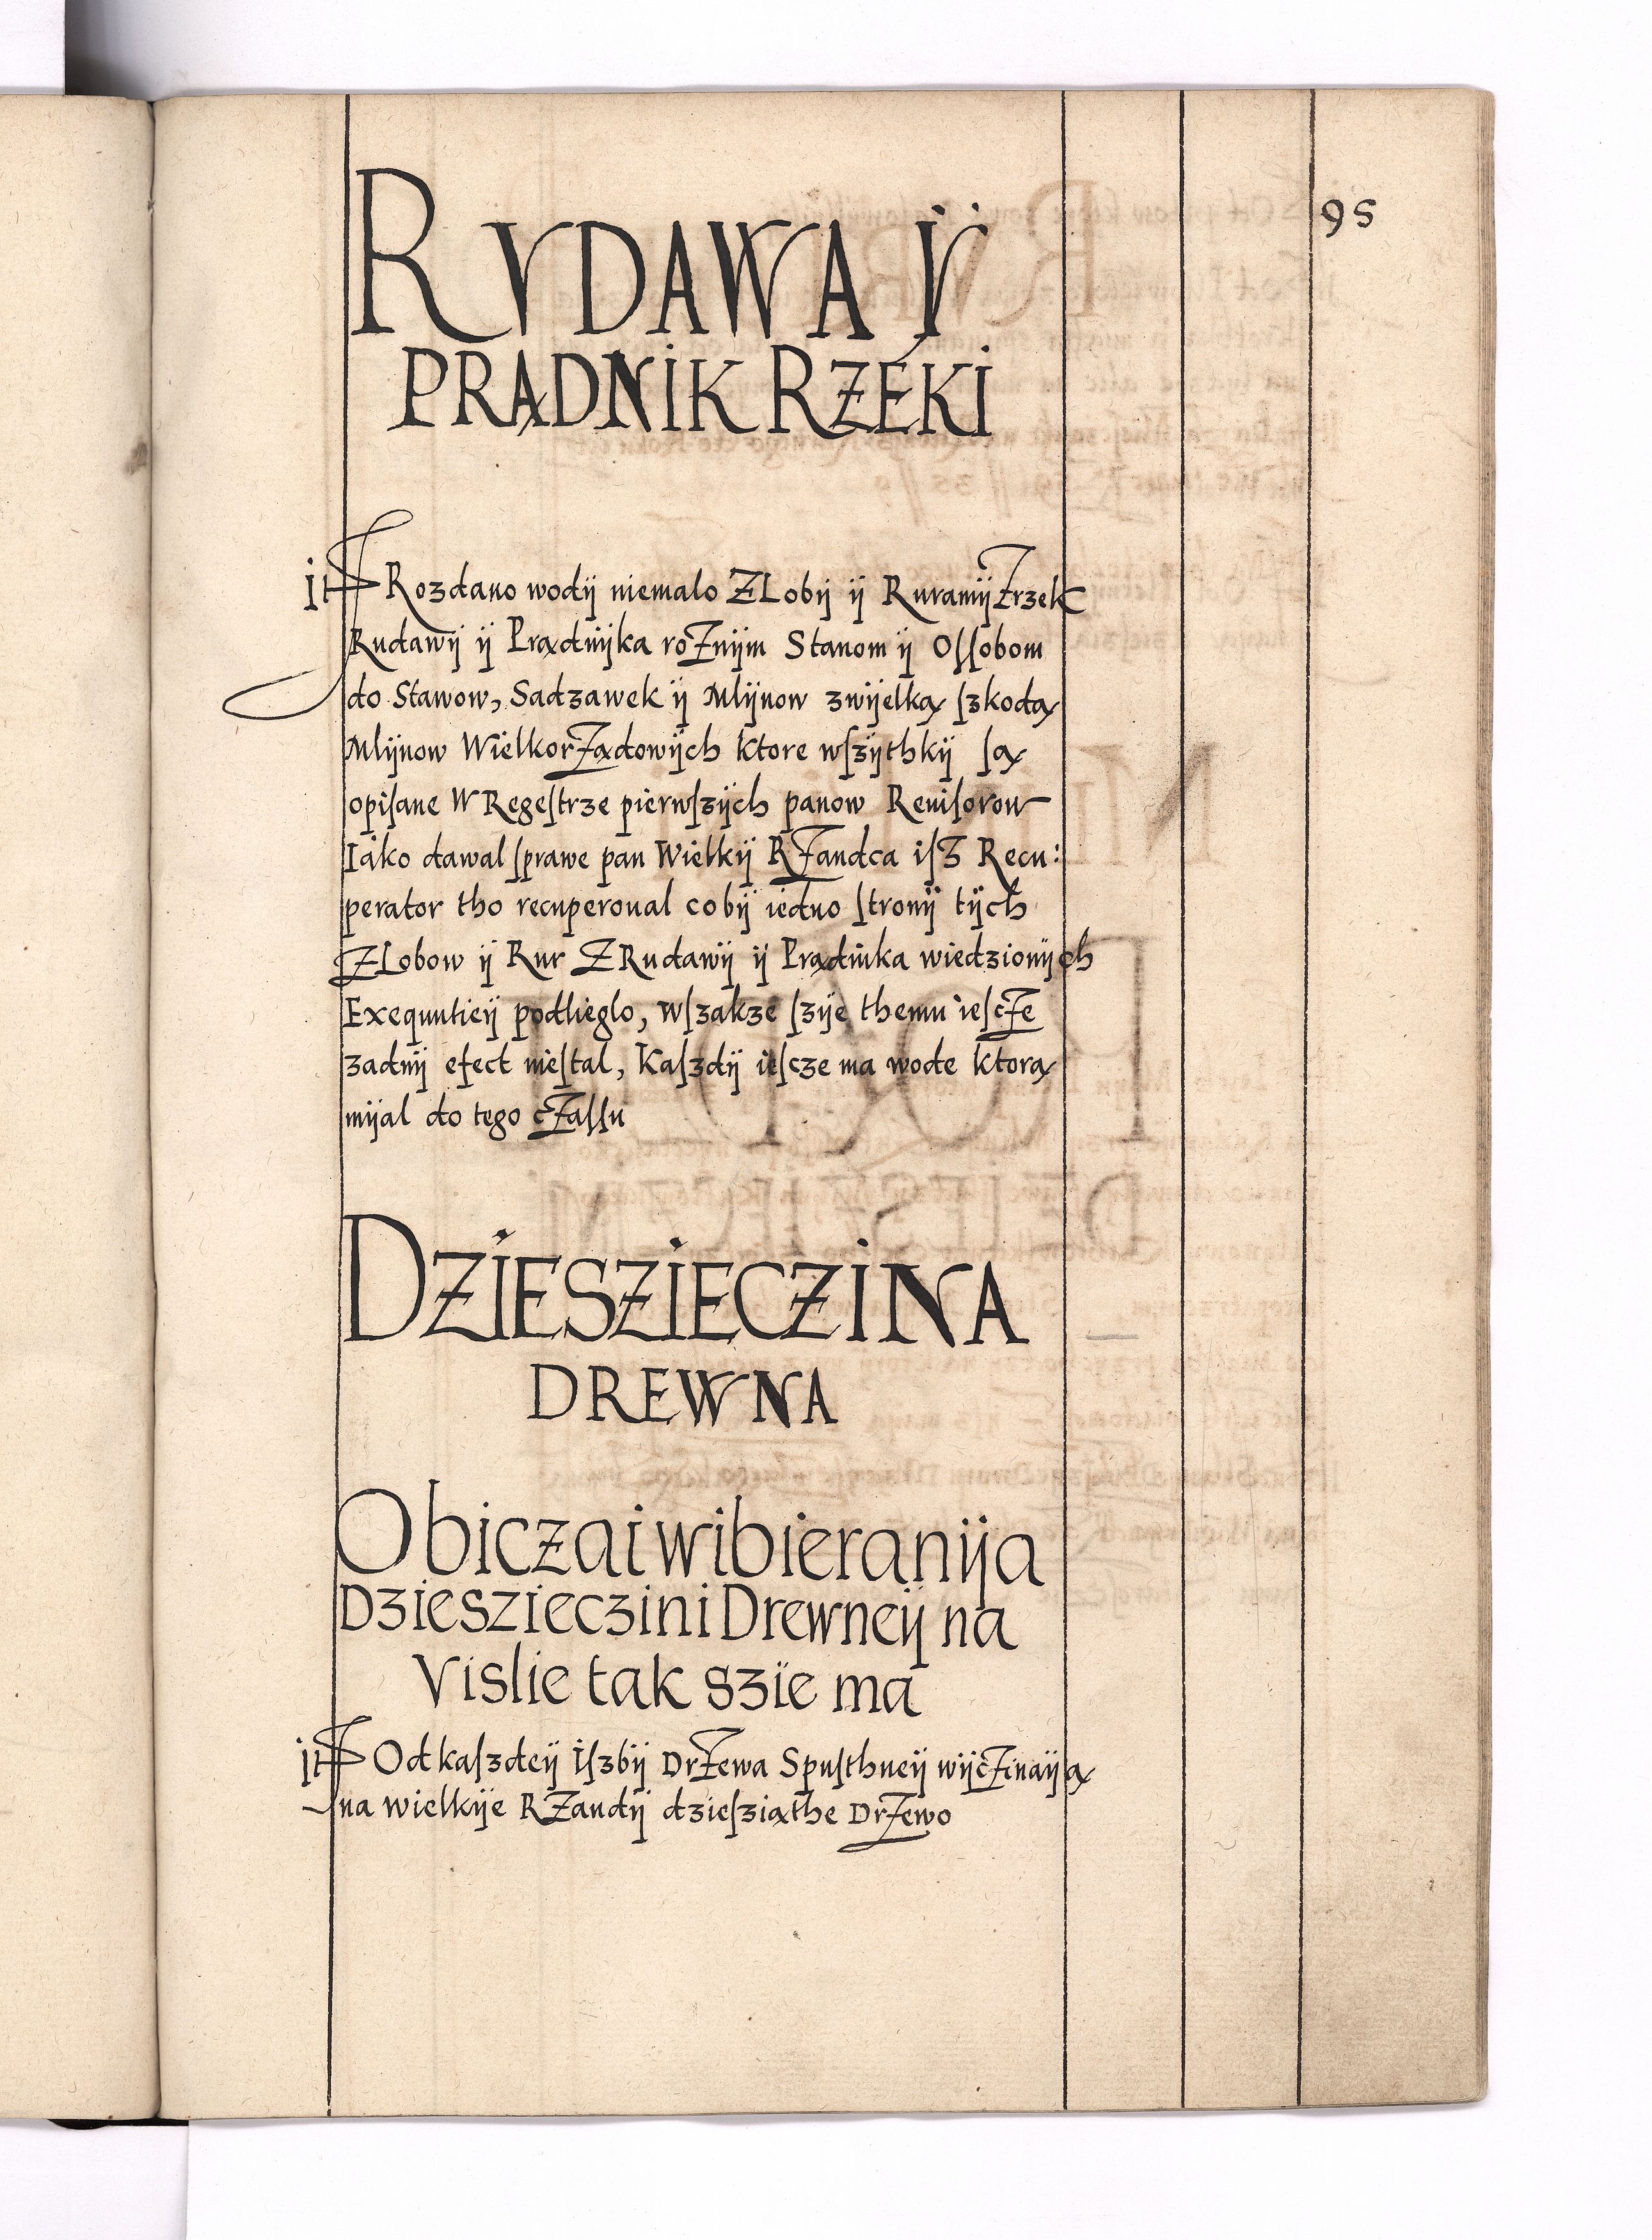 95
RVDAWA Ÿ
PRĄDNIK RZÉKI
It Rozdano wodÿ niemalo ZLobÿ ÿ RuramÿZrzek
Rudawÿ ÿ Prądnÿka roZnÿm Stanom ÿ Oſſobom
do Stawow, Sadzawek ÿ Mlÿnow zwÿelką ſzkodą
Mlÿnow WielkorZądowÿch ktore wſzÿthkÿ ſą
opiſane W Regeſtrze pierwſzÿch panow Reuiſorow
Iako dawal ſprawe pan Wielkÿ RZandca iſz Recu:
perator tho recuperoual cobÿ iedno ſtronÿ tÿch
ZLobow ÿ Rur ZRudawÿ ÿ Prądnika wiedzionÿch
Exequutieÿ podlieglo, wſzakze ſzÿe themu ieſcZe
zadnÿ efect nieſtal, Kaſzdÿ ieſcze ma wode ktorą
mÿal do tego cZaſſu
DZIESZIECZINA
DREWNA
Obiczai wibieranÿa
Dzieszieczini Drewneÿ na
Vislie tak szïe ma
it Od kaſzdeÿ iſzbÿ DrZewa Spuſthneÿ wÿcZinaÿą
na wielkÿe RZandÿ dzieſziąthe DrZewo